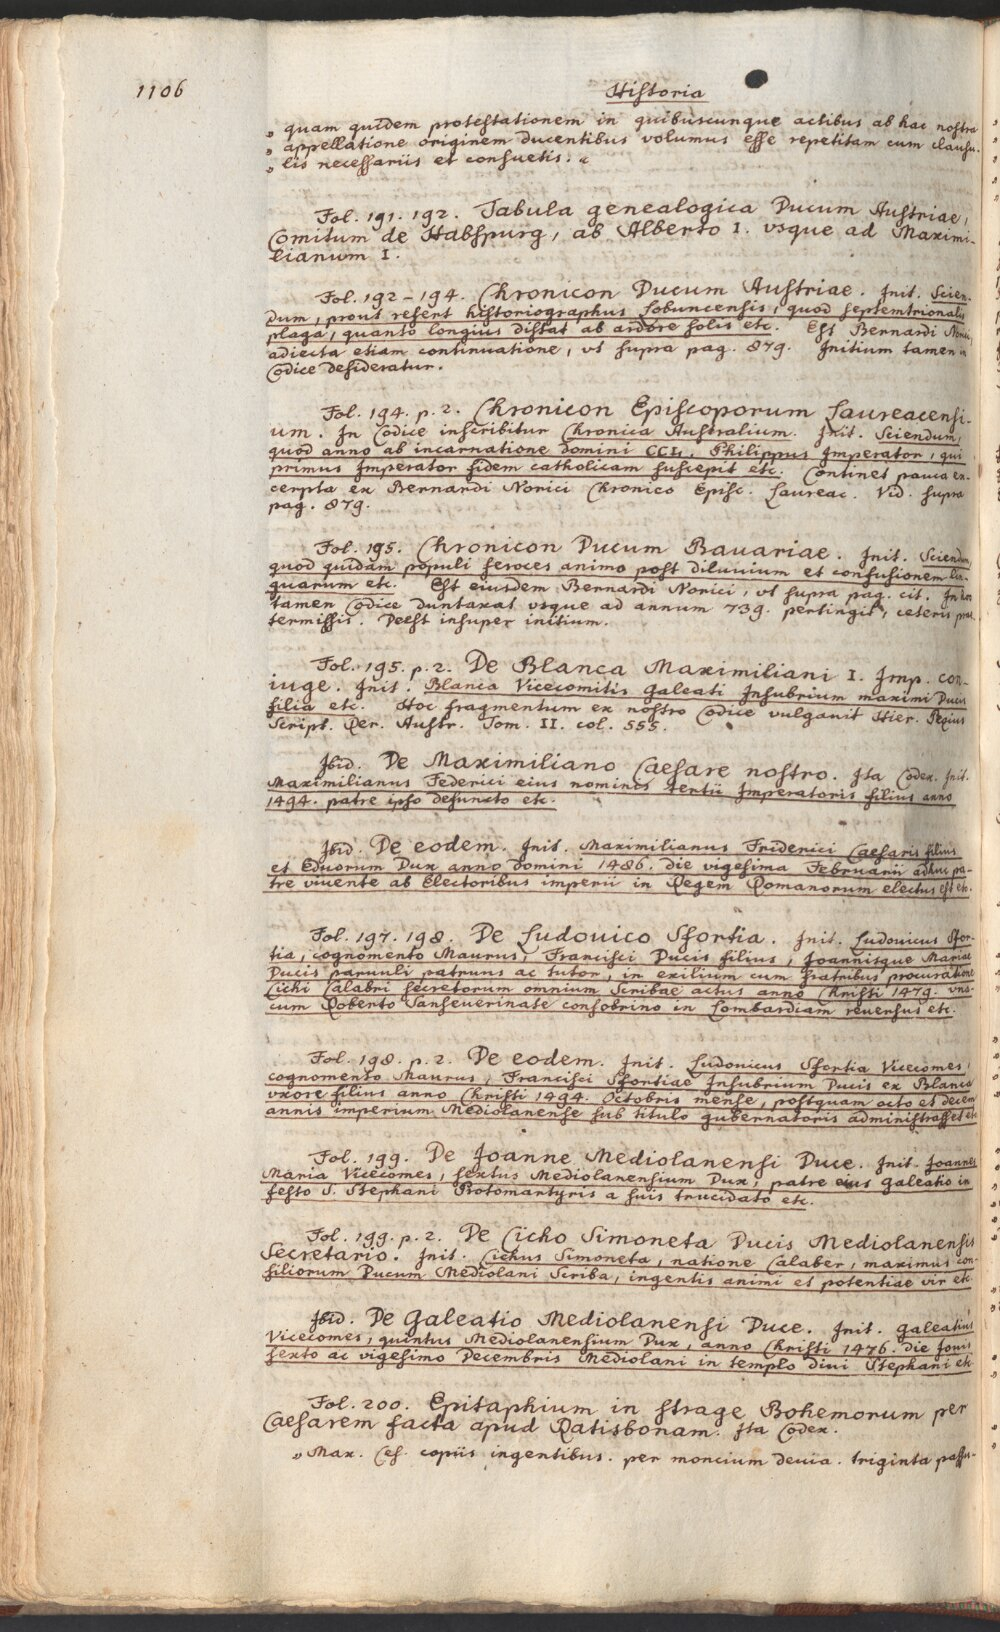 1106
Historia
„ quam quidem protestationem in quibuscunque actibus ab hac nostra
„ appellatione originem ducentibus volumus esse repetitam cum clausu-
„ lis necessariis et consuetis. “
Fol. 191. 192. Tabula genealogica Ducum Austriae,
Comitum de Habspurg, ab Alberto I. vsque ad Maximi-
lianum I.
Fol. 192-194. Chronicon Ducum Austriae. Init. Scien-
dum, prout refert historiographus Lobuncensis, quod septemtrionalis
plaga, quanto longius distat ab ardore solis etc. Est Bernardi Norici
adiecta etiam continuatione, vt supra pag. 879. Initium tamen in
Codice desideratur.
Fol. 194. p. 2. Chronicon Episcoporum Laureacensi-
um. In Codice inscribitur Chronica Australium. Init. Sciendum,
quod anno ab incarnatione domini CCLI. Philippus Imperator, qui
primus Imperator fidem catholicam suscepit etc. Continet pauca ex-
cerpta ex Bernardi Norici Chronico Episc. Laureac. Vid. supra
pag. 879.
Fol. 195. Chronicon Ducum Bauariae. Init. Sciendum,
quod quidam populi feroces animo post diluuium et confusionem lin-
guarum etc. Est eiusdem Bernardi Norici, vt supra pag. cit. In hoc
tamen Codice duntaxat vsque ad annum 739. pertingit, ceteris prae-
termissis. Deest insuper initium.
Fol. 195. p. 2. De Blanca Maximiliani I. Imp. con-
iuge. Init. Blanca Vicecomitis Galeati Insubrium maximi Ducis
filia etc. Hoc fragmentum ex nostro Codice vulgauit Hier. Pezius
Script. Rer. Austr. Tom. II. col. 555.
Ibid. De Maximiliano Caesare nostro. Ita Codex. Init.
Maximilianus Federici eius nominis tertii Imperatoris filius anno
1494. patre ipso defuncto etc.
Ibid. De eodem. Init. Maximilianus Friderici Caesaris filius
et Eduorum Dux anno Domini 1486. die vigesima Februarii adhuc pa-
tre viuente ab Electoribus imperii in Regem Romanorum electus est etc.
Fol. 197. 198. De Ludouico Sfortia. Init. Ludouicus Sfor-
tia, cognomento Maurus, Francisci Ducis filius, Joannisque Mariae
Ducis paruuli patruus ac tutor, in exilium cum fratribus procuratione
Cichi Calabri secretorum omnium Scribae actus anno Christi 1479. vna-
cum Roberto Sanseuerinate consobrino in Lombardiam reuersus etc.
Fol. 198. p. 2. De eodem. Init. Ludouicus Sfortia Vicecomes,
cognomento Maurus, Francisci Sfortiae Insubrium Ducis ex Blanca
vxore filius anno Christi 1494. Octobris mense, postquam octo et decem
annis imperium Mediolanense sub titulo gubernatoris administrasset etc
Fol. 199. De Joanne Mediolanensi Duce. Init. Joannes
Maria Vicecomes, sextus Mediolanensium Dux, patre eius Galeatio in
festo S. Stephani Protomartyris a suis trucidato etc.
Fol. 199. p. 2. De Cicho Simoneta Ducis Mediolanensis
Secretario. Init. Cichus Simoneta, natione Calaber, maximus con-
siliorum Ducum Mediolani Scriba, ingentis animi et potentiae vir etc
Ibid. De Galeatio Mediolanensi Duce. Init. Galeatius
Vicecomes, quintus Mediolanensium Dux, anno Christi 1476. die Jouis
sexto ac vigesimo Decembris Mediolani in templo diui Stephani etc
Fol. 200. Epitaphium in strage Bohemorum per
Caesarem facta apud Ratisbonam. Ita Codex.
„ Max. Ces. copiis ingentibus. per moncium deuia. triginta passu-